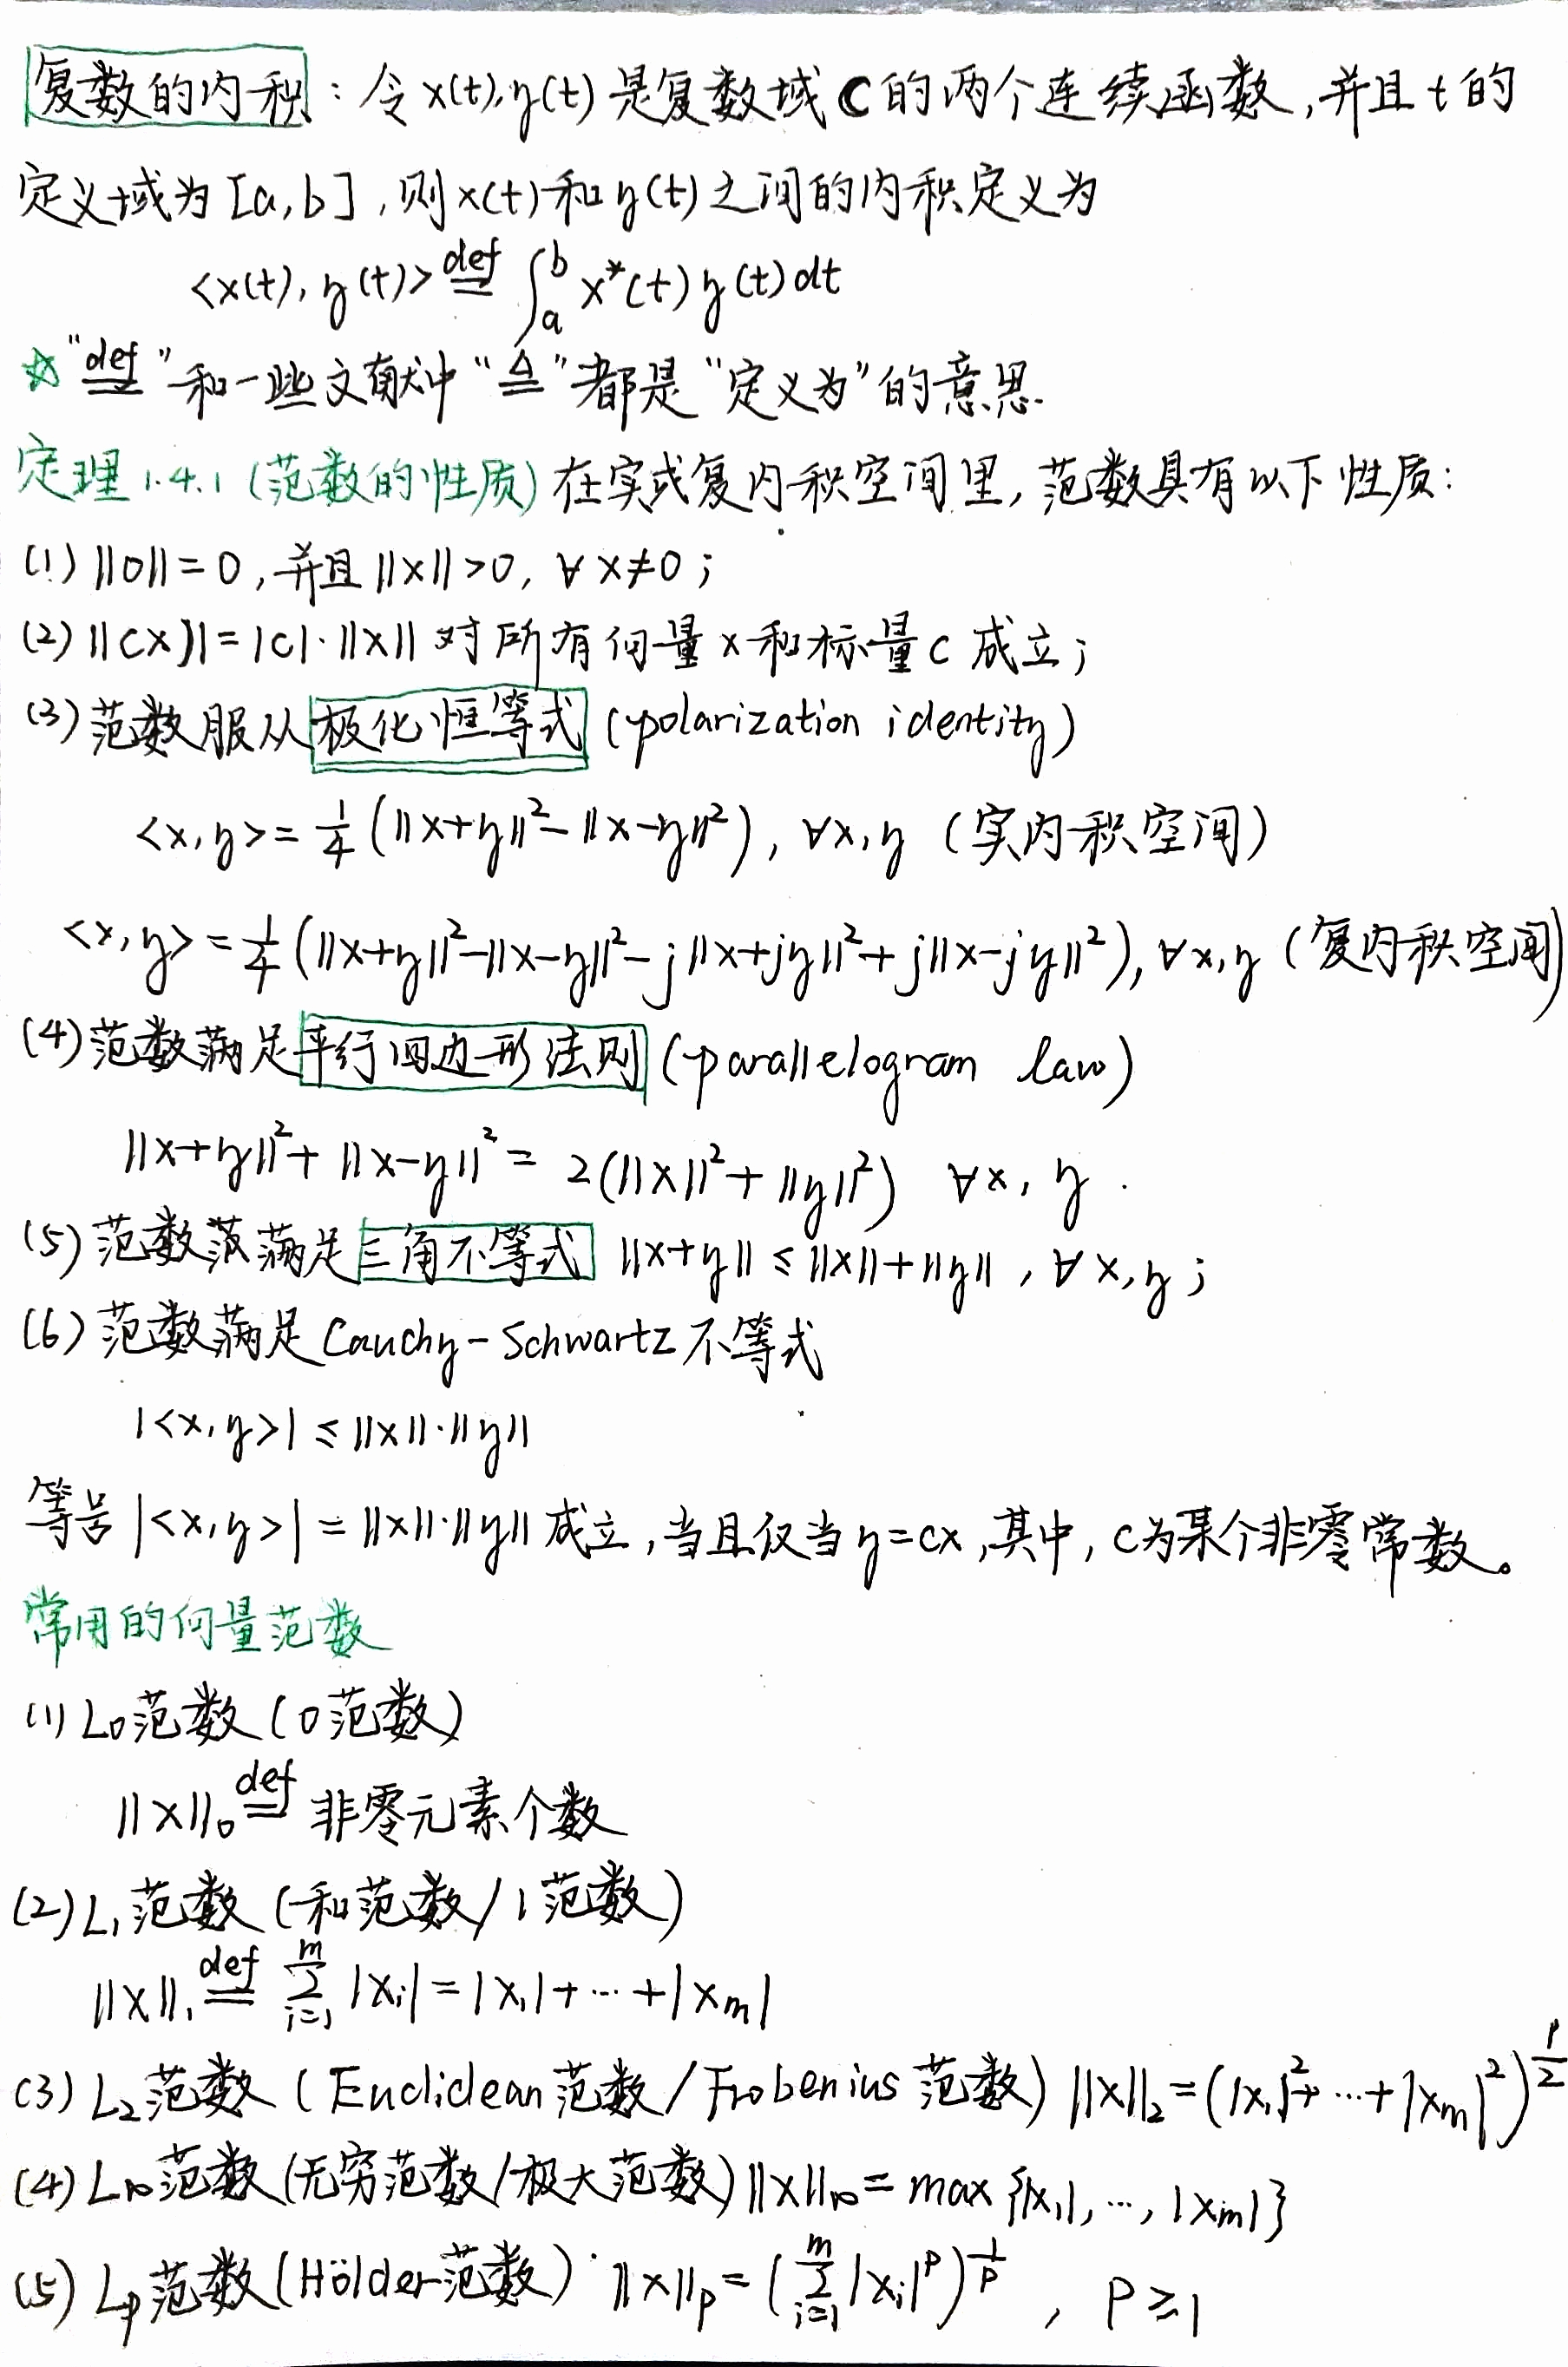 复数的内积：令 x(t), y(t) 是复数域 C 的两个连续函数，并且 t 的
定义域为 [a, b]，则 x(t) 和 y(t) 之间的内积定义为
<x(t), y(t)> def= ∫_a^b x*(t) y(t) dt
☆ "def=" 和一些文献中 "≜" 都是 "定义为" 的意思.
定理 1.4.1 (范数的性质) 在实或复内积空间里, 范数具有以下性质:
(1) ||0|| = 0, 并且 ||x|| > 0, ∀ x ≠ 0 ;
(2) ||cx|| = |c|·||x|| 对所有向量 x 和标量 c 成立;
(3) 范数服从极化恒等式 (polarization identity)
<x, y> = 1/4 (||x+y||² - ||x-y||²), ∀x, y (实内积空间)
<x, y> = 1/4 (||x+y||² - ||x-y||² - j||x+jy||² + j||x-jy||²), ∀x, y (复内积空间)
(4) 范数满足平行四边形法则 (parallelogram law)
||x+y||² + ||x-y||² = 2(||x||² + ||y||²) ∀x, y .
(5) 范数满足三角不等式 ||x+y|| ≤ ||x|| + ||y||, ∀ x, y ;
(6) 范数满足 Cauchy-Schwartz 不等式
|<x, y>| ≤ ||x||·||y||
等号 |<x, y>| = ||x||·||y|| 成立, 当且仅当 y = cx, 其中, c为某个非零常数。
常用的向量范数
(1) L0范数 (0范数)
||x||₀ def= 非零元素个数
(2) L₁范数 (和范数/1范数)
||x||₁ def= ∑_{i=1}^m |xᵢ| = |x₁| + ··· + |x_m|
(3) L₂范数 (Euclidean范数/Frobenius范数) ||x||₂ = (|x₁|² + ··· + |x_m|²)^{1/2}
(4) L∞范数 (无穷范数/极大范数) ||x||∞ = max {|x₁|, ···, |x_m|}
(5) Lp范数 (Hölder范数) ||x||p = (∑_{i=1}^m |xᵢ|^p)^{1/p}, P ≥ 1